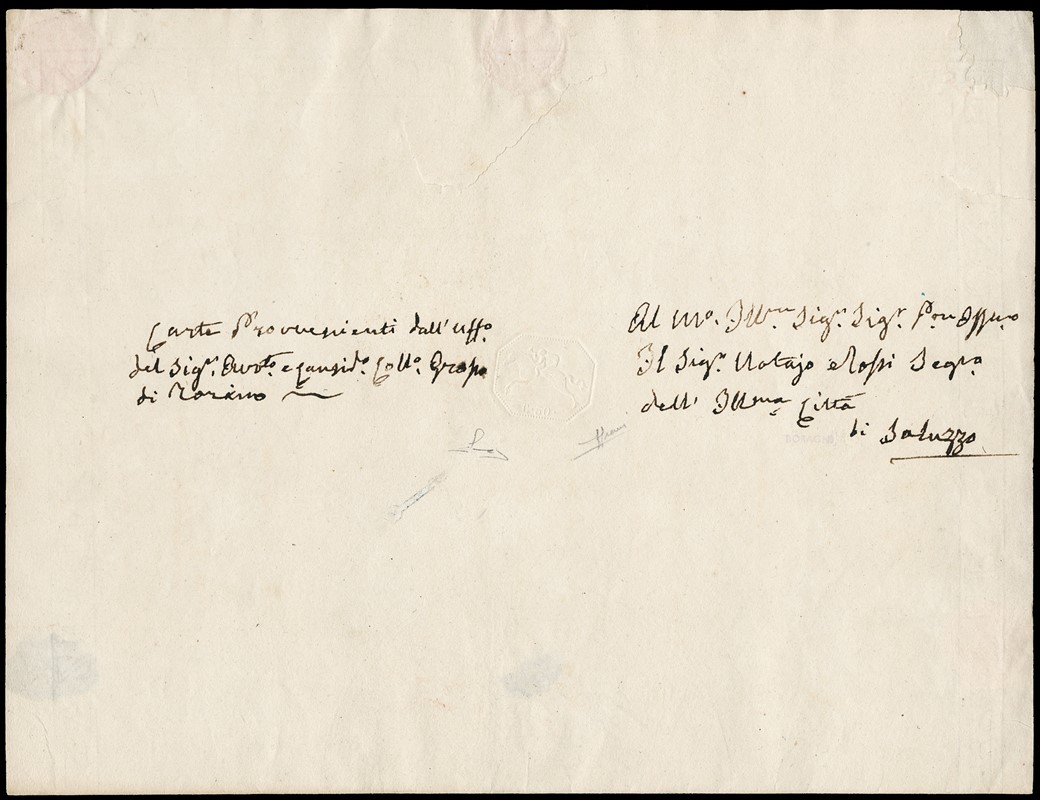 Carte Provvenienti dall' Uffo.
del Sigr. Avvto. e Causidco. Collo. Grosso
di Torino
Al Mo. Illre. Sigr. Sigr. Pron
Il Sigr. Notajo Rossi Segro.
dell' Illma Città
di Saluzzo